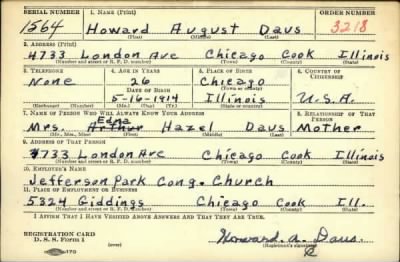 SERIAL NUMBER 1. NAME (Print) ORDER NUMBER
1564 Howard August Daus 3218
(First) (Middle) (Last)
2. ADDRESS (Print)
4733 London Ave Chicago Cook Illinois
(Number and street or R. F. D. number) (Town) (County) (State)
3. TELEPHONE 4. AGE IN YEARS 5. PLACE OF BIRTH 6. COUNTRY OF CITIZENSHIP
None 26 Chicago
DATE OF BIRTH (Town or county)
5-16-1914 Illinois U.S.A.
(Exchange) (Number) (Mo.) (Day) (Yr.) (State or country)
7. NAME OF PERSON WHO WILL ALWAYS KNOW YOUR ADDRESS 8. RELATIONSHIP OF THAT PERSON
Edna
Mrs. Arthur Hazel Daus Mother
(Mr., Mrs., Miss) (First) (Middle) (Last)
9. ADDRESS OF THAT PERSON
4733 London Ave Chicago Cook Illinois
(Number and street or R. F. D. number) (Town) (County) (State)
10. EMPLOYER'S NAME
Jefferson Park Cong. Church
11. PLACE OF EMPLOYMENT OR BUSINESS
5324 Giddings Chicago Cook Ill.
(Number and street or R. F. D. number) (Town) (County) (State)
I AFFIRM THAT I HAVE VERIFIED ABOVE ANSWERS AND THAT THEY ARE TRUE.
REGISTRATION CARD
D. S. S. Form 1 Howard. A. Daus.
(Registrant's signature)